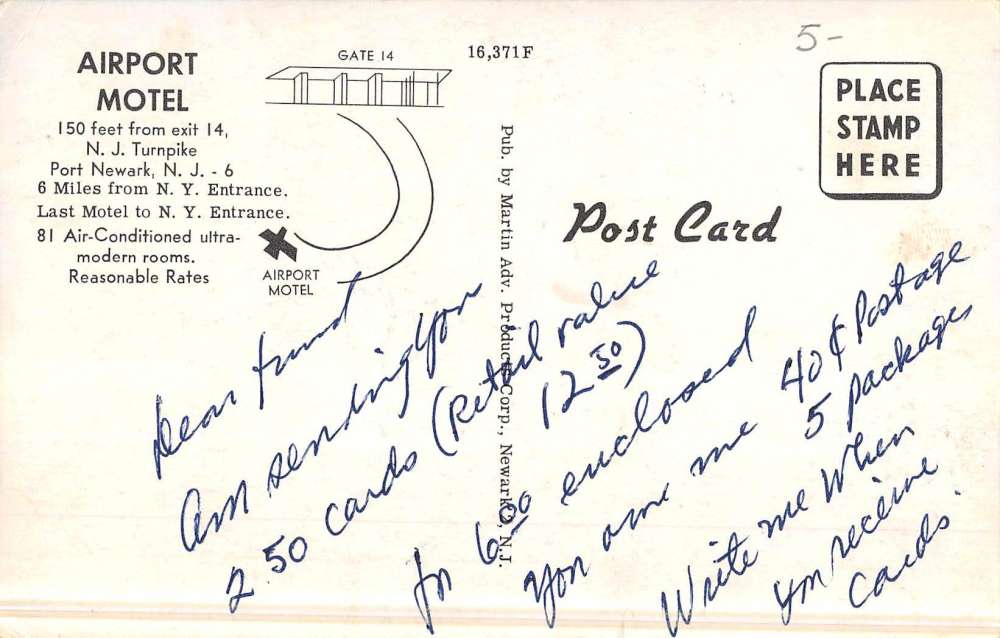 5-
AIRPORT
MOTEL
150 feet from exit 14,
N. J. Turnpike
Port Newark, N. J. - 6
6 Miles from N. Y. Entrance.
Last Motel to N. Y. Entrance.
81 Air-Conditioned ultra-
modern rooms.
Reasonable Rates
GATE 14
AIRPORT
MOTEL
16,371F
Pub. by Martin Adv. Products Corp., Newark 2, N.J.
PLACE
STAMP
HERE
Post Card
Dear friend
Am sending you
250 cards (Retail value
12 50)
for 6 00 enclosed
You owe me 40¢ Postage
5 packages
Write me when
you receive
cards.